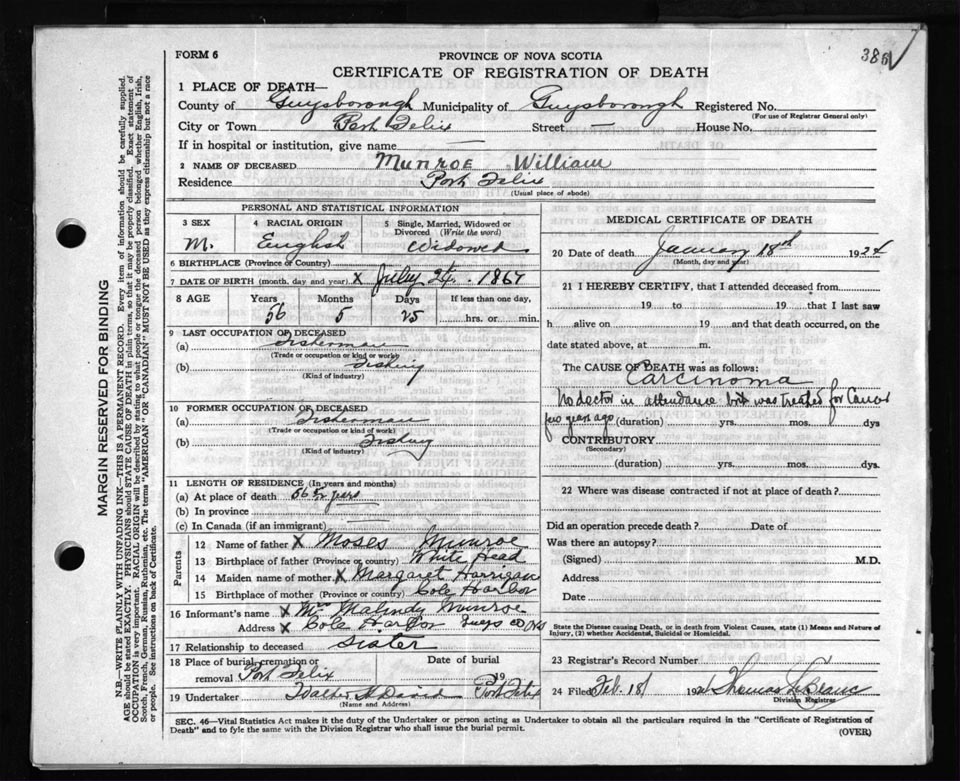 FORM 6
PROVINCE OF NOVA SCOTIA
385
CERTIFICATE OF REGISTRATION OF DEATH
1 PLACE OF DEATH—
County of Guysborough Municipality of Guysborough Registered No.
(For use of Registrar General only)
City or Town Port Felix Street — House No.
If in hospital or institution, give name —
2 NAME OF DECEASED Munroe William
Residence Port Felix
(Usual place of abode)
PERSONAL AND STATISTICAL INFORMATION
3 SEX 4 RACIAL ORIGIN 5 Single, Married, Widowed or Divorced (Write the word)
M. English Widowed
6 BIRTHPLACE (Province or Country)
7 DATE OF BIRTH (month, day and year) X July 24. 1867
8 AGE Years Months Days If less than one day,
56 5 25 hrs. or min.
9 LAST OCCUPATION OF DECEASED
(a) Fisherman
(Trade or occupation or kind or work)
(b) Fishing
(Kind of industry)
10 FORMER OCCUPATION OF DECEASED
(a) Fisherman
(Trade or occupation or kind of work)
(b) Fishing
(Kind of industry)
11 LENGTH OF RESIDENCE (In years and months)
(a) At place of death 56 years
(b) In province —
(c) In Canada (if an immigrant)
Parents
12 Name of father X Moses Munroe
13 Birthplace of father (Province or country) White Head
14 Maiden name of mother X Margaret Horrigan
15 Birthplace of mother (Province or country) Cole Harbor
16 Informant's name X Mrs Malindy Munroe
Address X Cole Harbor Guys Co NS
17 Relationship to deceased Sister
18 Place of burial, cremation or removal Port Felix Date of burial 19
19 Undertaker Walter H David Port Felix
(Name and Address)
MEDICAL CERTIFICATE OF DEATH
20 Date of death January 18th 1924
(Month, day and year)
21 I HEREBY CERTIFY, that I attended deceased from
19 to 19 that I last saw
h alive on 19 and that death occurred, on the
date stated above, at m.
The CAUSE OF DEATH was as follows:
Carcinoma
No doctor in attendance but was treated for Cancer
few years ago (duration) yrs. mos. dys
CONTRIBUTORY
(Secondary)
(duration) yrs. mos. dys.
22 Where was disease contracted if not at place of death?
Did an operation precede death? Date of
Was there an autopsy?
(Signed) M.D.
Address
Date
State the Disease causing Death, or in death from Violent Causes, state (1) Means and Nature of
Injury, (2) whether Accidental, Suicidal or Homicidal.
23 Registrar's Record Number
24 Filed Feb. 18 1924 Thomas
Division Registrar
SEC. 46—Vital Statistics Act makes it the duty of the Undertaker or person acting as Undertaker to obtain all the particulars required in the "Certificate of Registration of
Death" and to fyle the same with the Division Registrar who shall issue the burial permit.
(OVER)
MARGIN RESERVED FOR BINDING
N.B.—WRITE PLAINLY WITH UNFADING INK—THIS IS A PERMANENT RECORD. Every item of information should be carefully supplied.
AGE should be stated EXACTLY. PHYSICIANS should STATE CAUSE OF DEATH in plain terms, so that it may be properly classified. Exact statement of
OCCUPATION is very important. RACIAL ORIGIN will be described by stating to what people or tongue the deceased person belonged whether English, Irish,
Scotch, French, German, Russian, Ruthenian, etc. The terms "AMERICAN" OR "CANADIAN" MUST NOT BE USED as they express citizenship but not a race
or people. See instructions on back of Certificate.